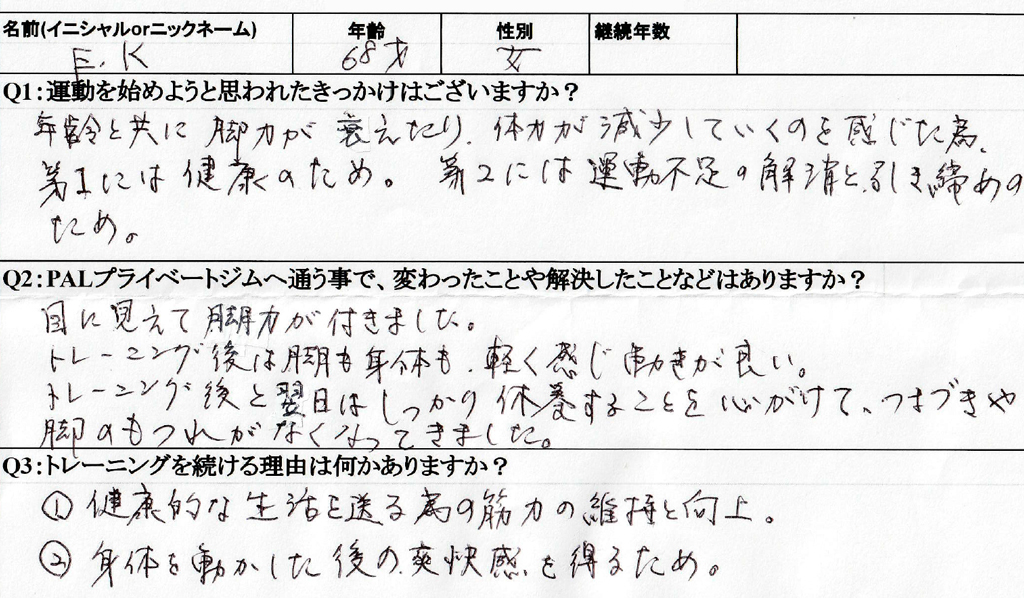 名前(イニシャルorニックネーム) 年齢 性別 継続年数
E.K 68才 女
Q1:運動を始めようと思われたきっかけはございますか?
年齢と共に脚力が衰えたり、体力が減少していくのを感じた為、
第1には健康のため。第2には運動不足の解消と、引き締めの
ため。
Q2:PALプライベートジムへ通う事で、変わったことや解決したことなどはありますか?
目に見えて脚力が付きました。
トレーニング後は脚も身体も、軽く感じ動きが良い。
トレーニング後と翌日はしっかり休養することを心がけて、つまづきや
脚のもつれがなくなってきました。
Q3:トレーニングを続ける理由は何かありますか?
① 健康的な生活を送る為の筋力の維持と向上。
② 身体を動かした後の爽快感を得るため。